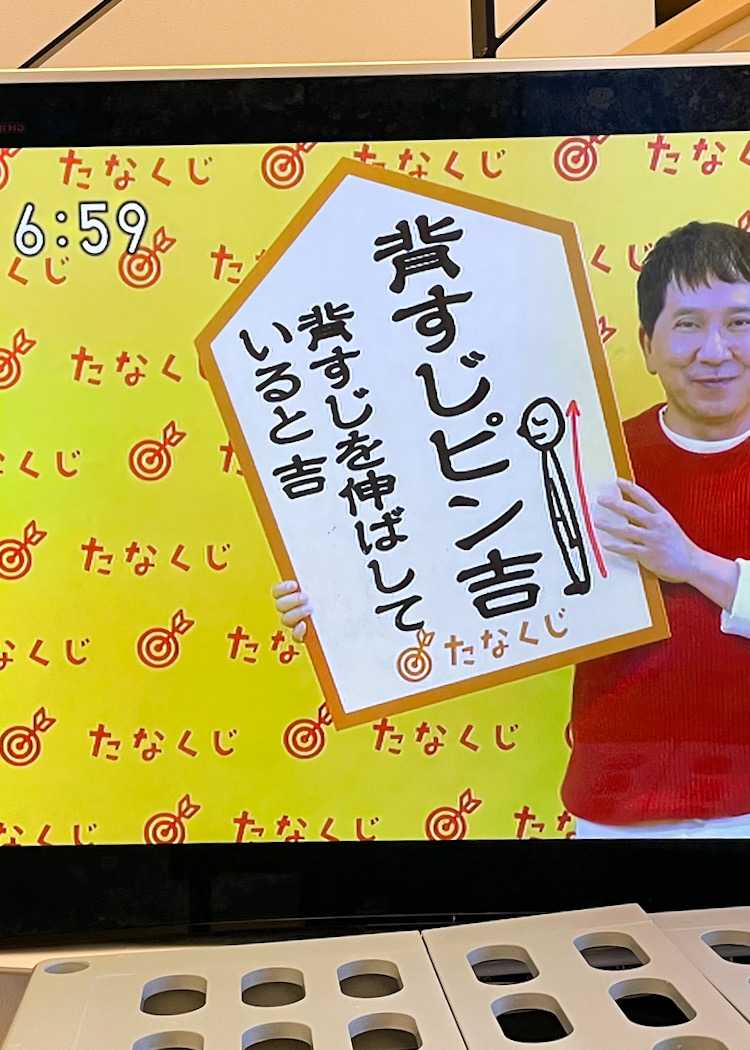 6:59
背すじピン吉
背すじを伸ばして
いると吉
たなくじ
たなくじ
たなくじ
たなくじ
たなくじ
たなくじ
たなくじ
たなくじ